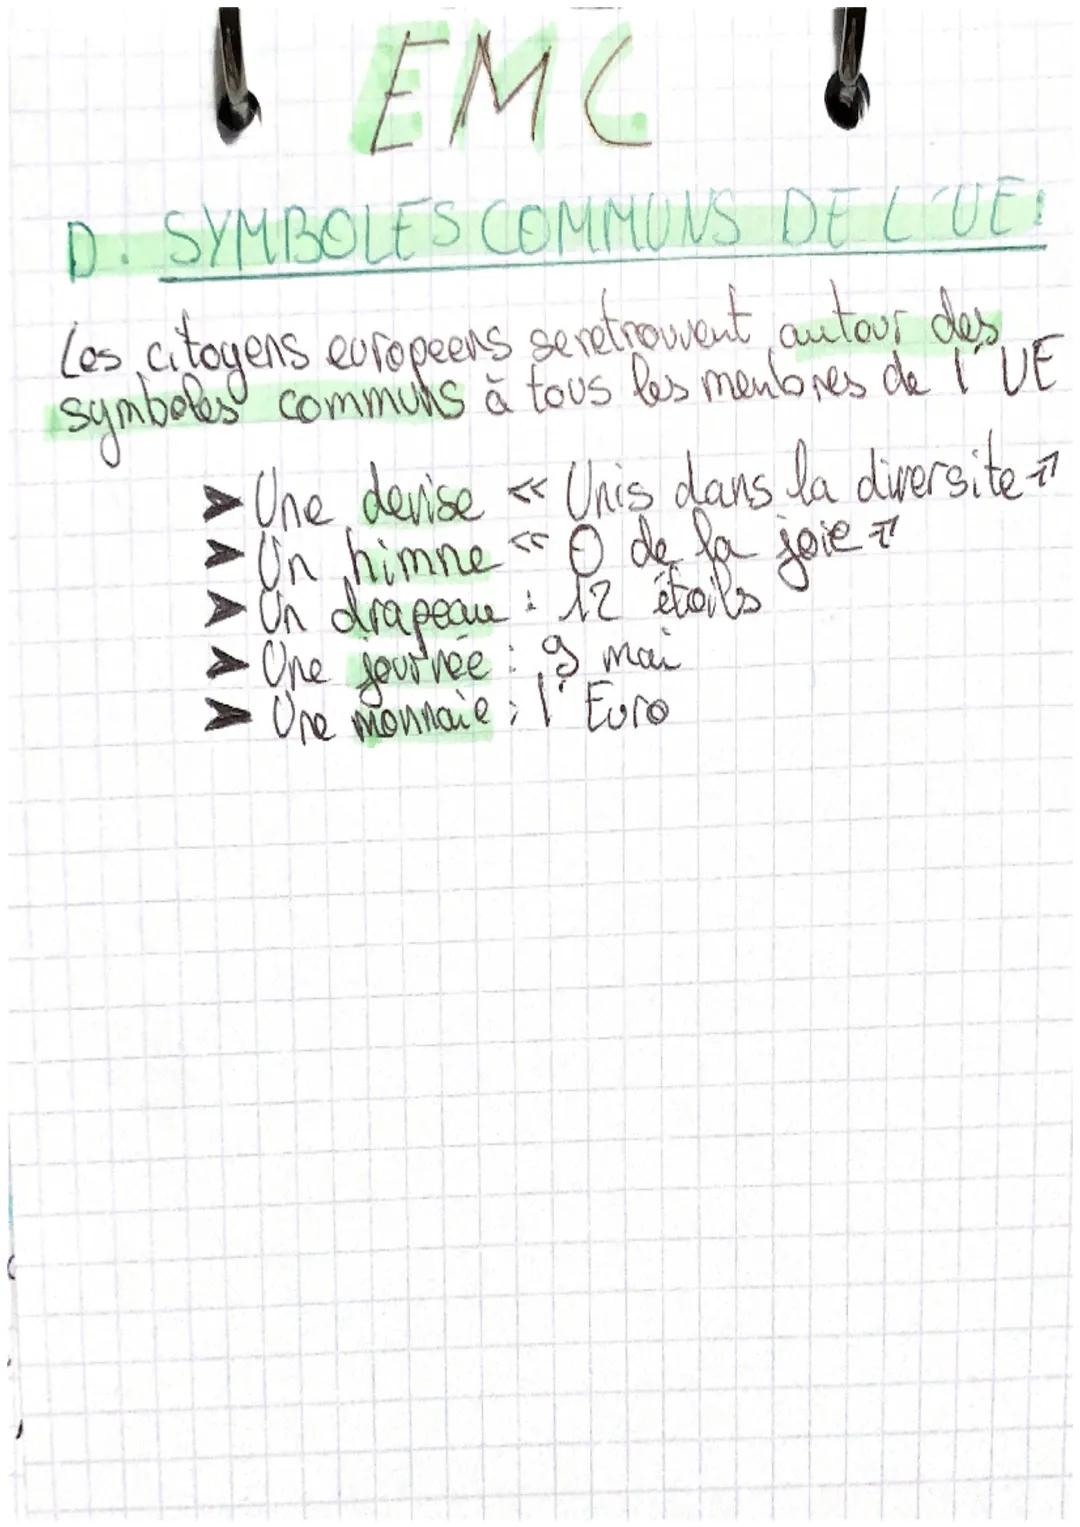 EMC
D. SYMBOLES COMMUNS DE L'UE:
Les citoyens européens seretrouvent autour des
symboles communs à tous les menbres de l'UE
➤ Une devise « Unis dans la diversite »
➤ Un himne « O de la joie »
➤ Un drapeau : 12 étoils
➤ Une journée : 9 mai
➤ Une monnaie : l'Euro